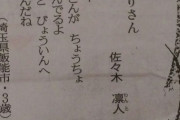 りさん
佐々木 凛人
んが ちょうちょ
んでるよ
と びょういんへ
んだね
(埼玉県飯能市・3歳)